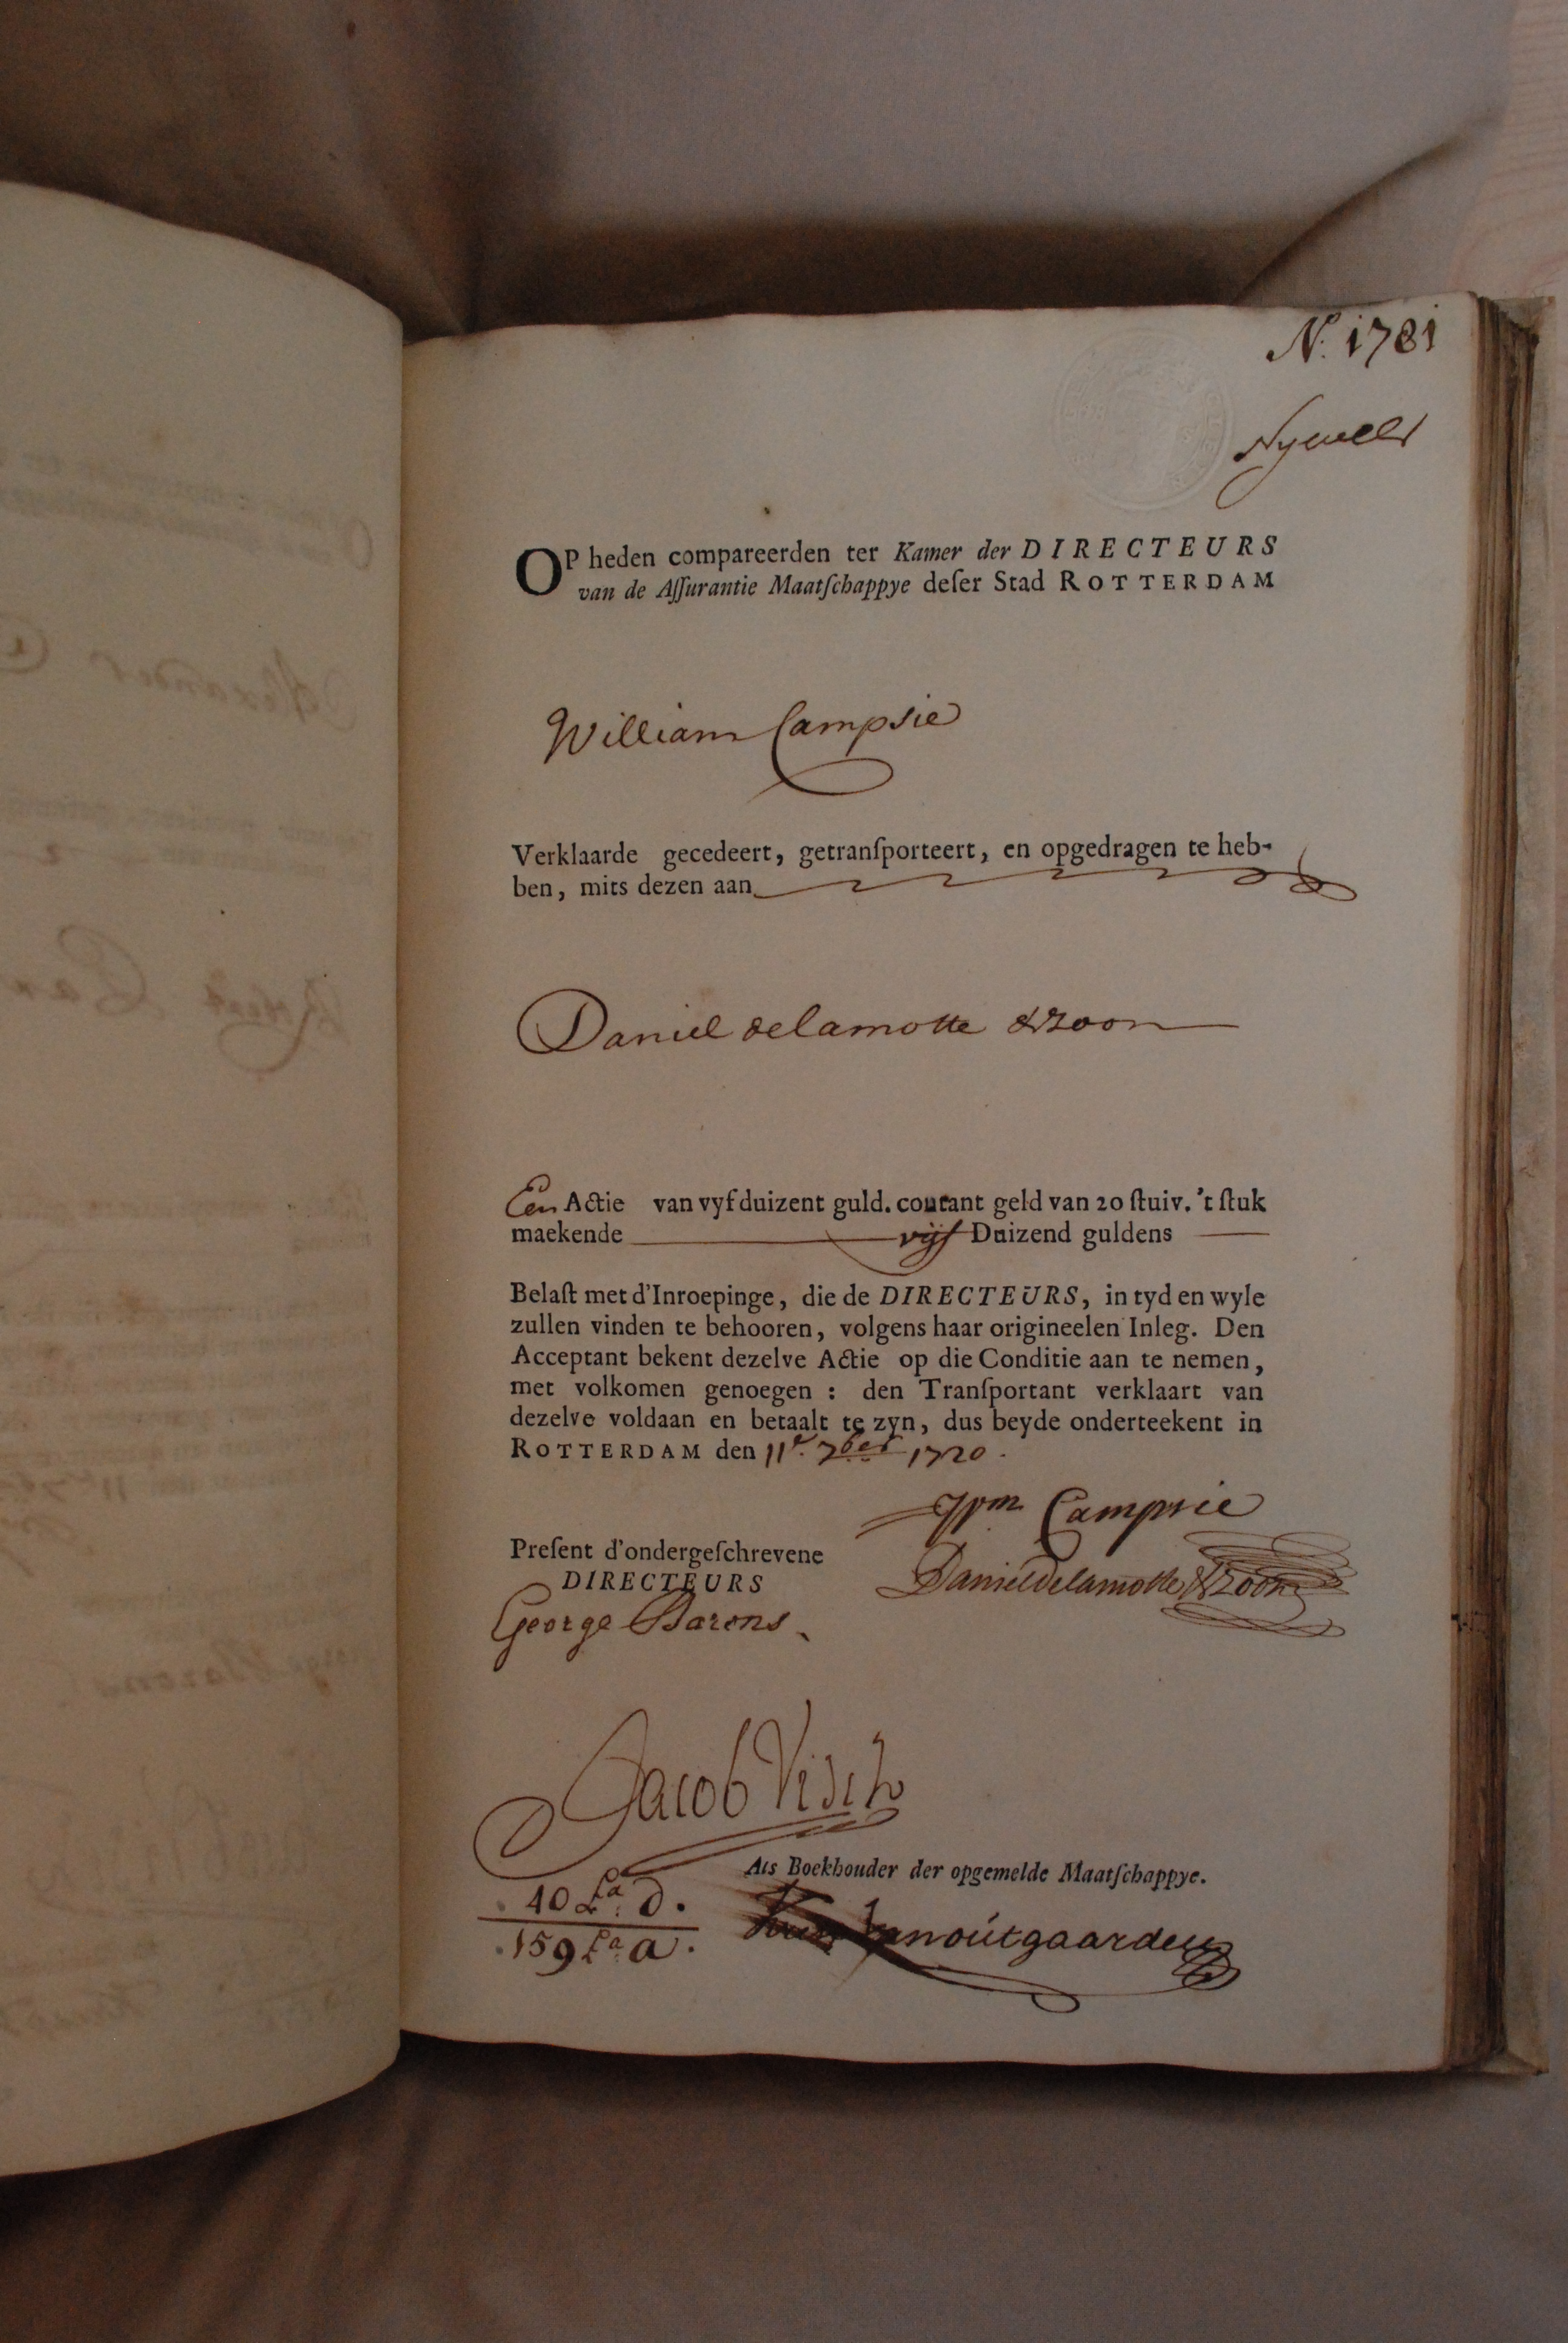 N.º 1781
OP heden compareerden ter Kamer der DIRECTEURS
van de Aſſurantie Maatſchappye deſer Stad ROTTERDAM
William Campsie
Verklaarde gecedeert, getranſporteert, en opgedragen te heb-
ben, mits dezen aan
Daniel delamotte & zoon
Een Actie van vyf duizent guld. courant geld van 20 ſtuiv. 't ſtuk
maekende vijf Duizend guldens
Belaſt met d'Inroepinge, die de DIRECTEURS, in tyd en wyle
zullen vinden te behooren, volgens haar origineelen Inleg. Den
Acceptant bekent dezelve Actie op die Conditie aan te nemen,
met volkomen genoegen : den Tranſportant verklaart van
dezelve voldaan en betaalt te zyn, dus beyde onderteekent in
ROTTERDAM den 11e. 7ber 1720.
Wm Campsie
Preſent d'ondergeſchrevene
DIRECTEURS
Daniel delamotte & zoon
George Barons
Jacob Visch
Als Boekhouder der opgemelde Maatſchappye.
40 La. d.
159 La a.
vanoutgaarden